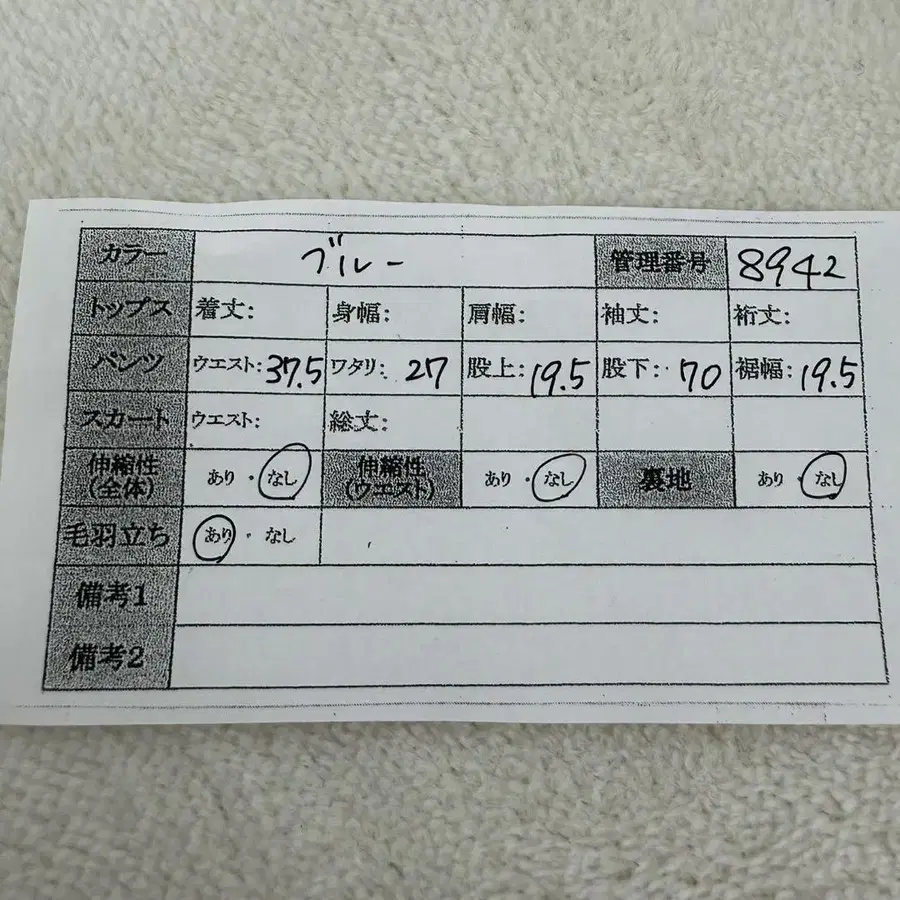 カラー ブルー 管理番号 8942
トップス 着丈: 身幅: 肩幅: 袖丈: 裄丈:
パンツ ウエスト: 37.5 ワタリ: 27 股上: 19.5 股下: 70 裾幅: 19.5
スカート ウエスト: 総丈:
伸縮性(全体) あり・なし 伸縮性(ウエスト) あり・なし 裏地 あり・なし
毛羽立ち あり・なし
備考1
備考2